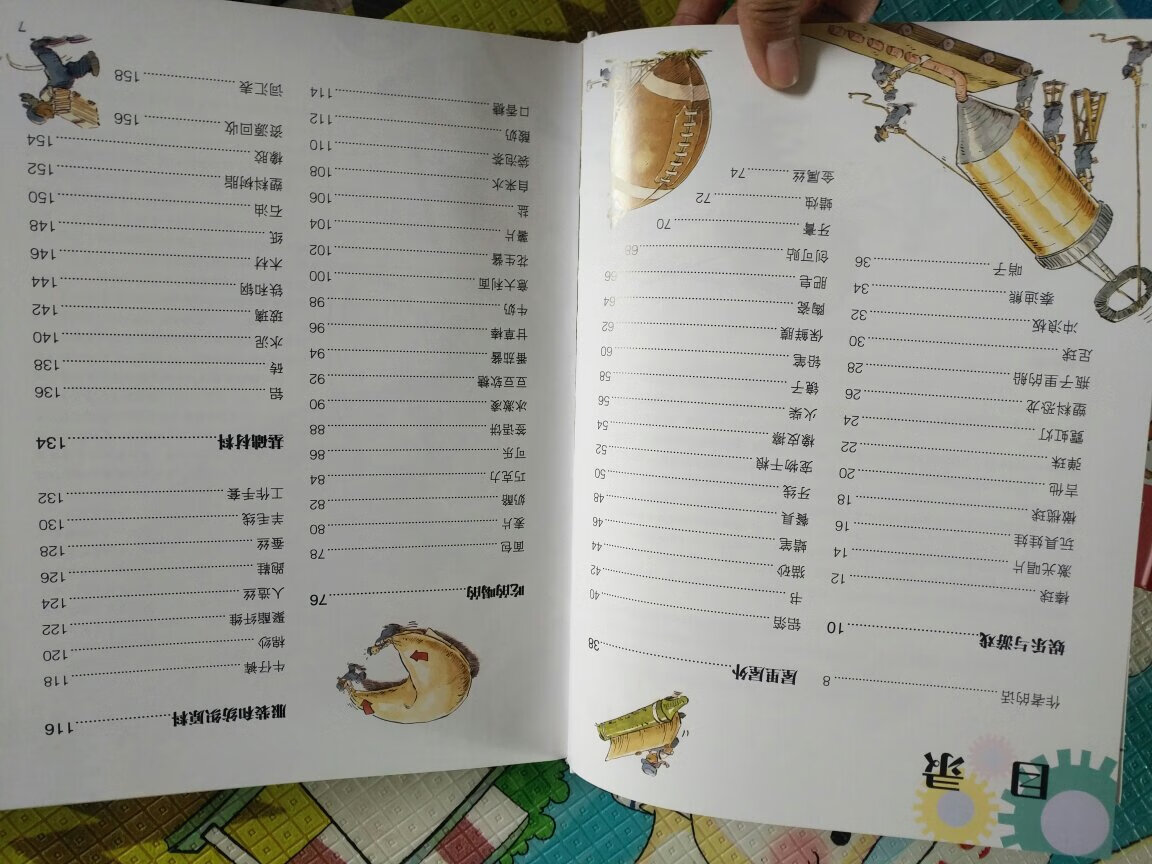 目 录
作者的话……8
娱乐与游戏……10
棒球……12
激光唱片……14
玩具娃娃……16
橄榄球……18
吉他……20
弹球……22
霓虹灯……24
塑料恐龙……26
瓶子里的船……28
足球……30
冲浪板……32
泰迪熊……34
哨子……36
屋里屋外……38
铝箔……40
书……42
猫砂……44
蜡笔……46
餐具……48
牙线……50
宠物干粮……52
橡皮擦……54
火柴……56
镜子……58
铅笔……60
保鲜膜……62
陶瓷……64
肥皂……66
创可贴……68
牙膏……70
蜡烛……72
金属丝……74
吃的喝的……76
面包……78
麦片……80
奶酪……82
巧克力……84
可乐……86
签语饼……88
冰激凌……90
豆豆软糖……92
番茄酱……94
甘草棒……96
牛奶……98
意大利面……100
花生酱……102
薯片……104
盐……106
自来水……108
袋泡茶……110
酸奶……112
口香糖……114
服装和纺织原料……116
牛仔裤……118
棉纱……120
聚酯纤维……122
人造丝……124
跑鞋……126
蚕丝……128
羊毛线……130
工作手套……132
基础材料……134
铝……136
砖……138
水泥……140
玻璃……142
铁和钢……144
木材……146
纸……148
石油……150
塑料树脂……152
橡胶……154
资源回收……156
词汇表……158
7